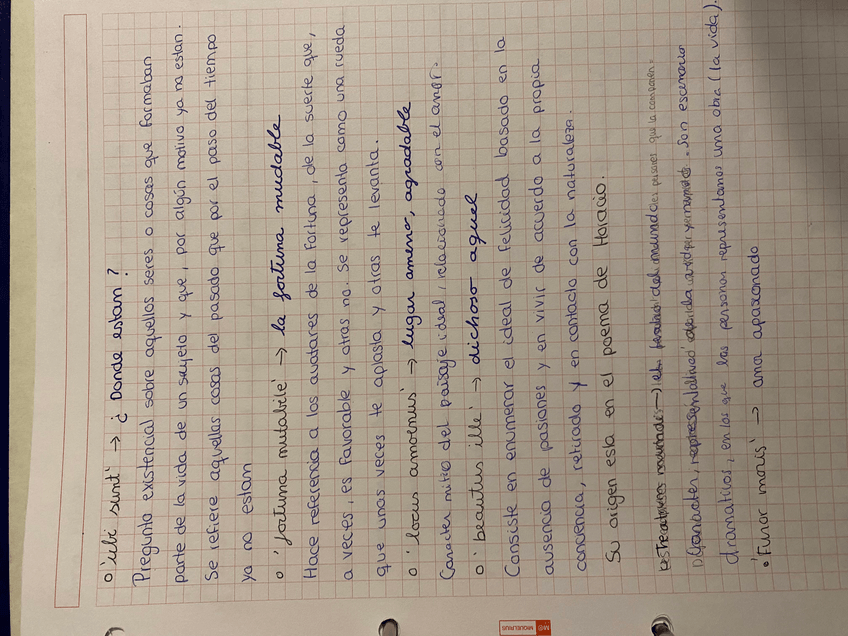 o 'ubi sunt' → ¿ Donde estan?
Pregunta existencial sobre aquellos seres o cosas que formaban
parte de la vida de un sujeto y que, por algún motivo ya no estan.
Se refiere aquellas cosas del pasado que por el paso del tiempo
ya no estan
o 'fortuna mutabile' → la fortuna mudable
Hace referencia a los avatares de la fortuna, de la suerte que,
a veces, es favorable y otras no. Se representa como una rueda
que unas veces te aplasta y otras te levanta.
o 'locus amoenus' → lugar ameno, agradable
Caracter mitico del paisaje ideal, relacionado con el amor.
o 'beautus ille' → dichoso aquel
Consiste en enumerar el ideal de felicidad basado en la
ausencia de pasiones y en vivir de acuerdo a la propia
conciencia, retirado y en contacto con la naturaleza.
Su origen esta en el poema de Horacio.
personas que la componen.
Son escenario
dramaticos, en los que las personas representamos una obra (la vida).
o 'Furor moris' → amor apasionado
MIQUELRIUS